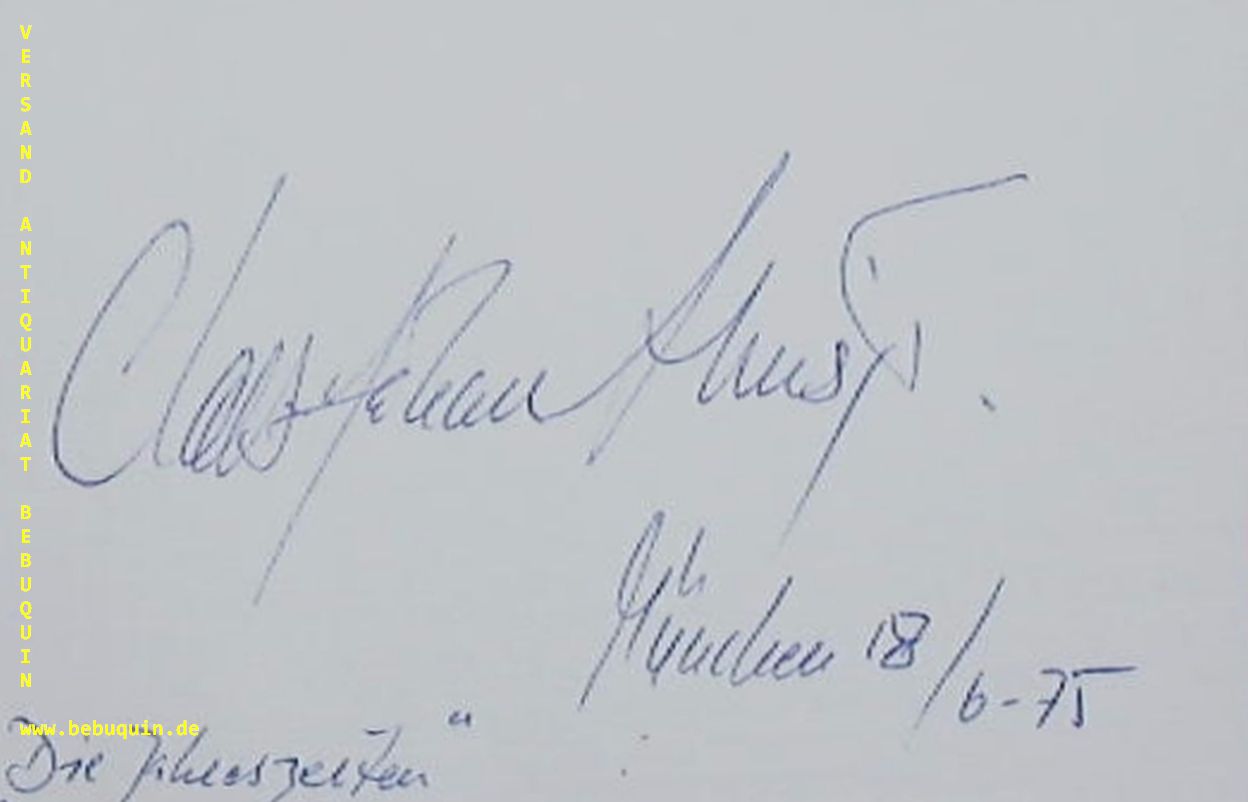 VERSAND ANTIQUARIAT BEBUQUIN
Claes Håkan Ahnsjö
München 18/6-75
www.bebuquin.de
"Die Jahreszeiten"